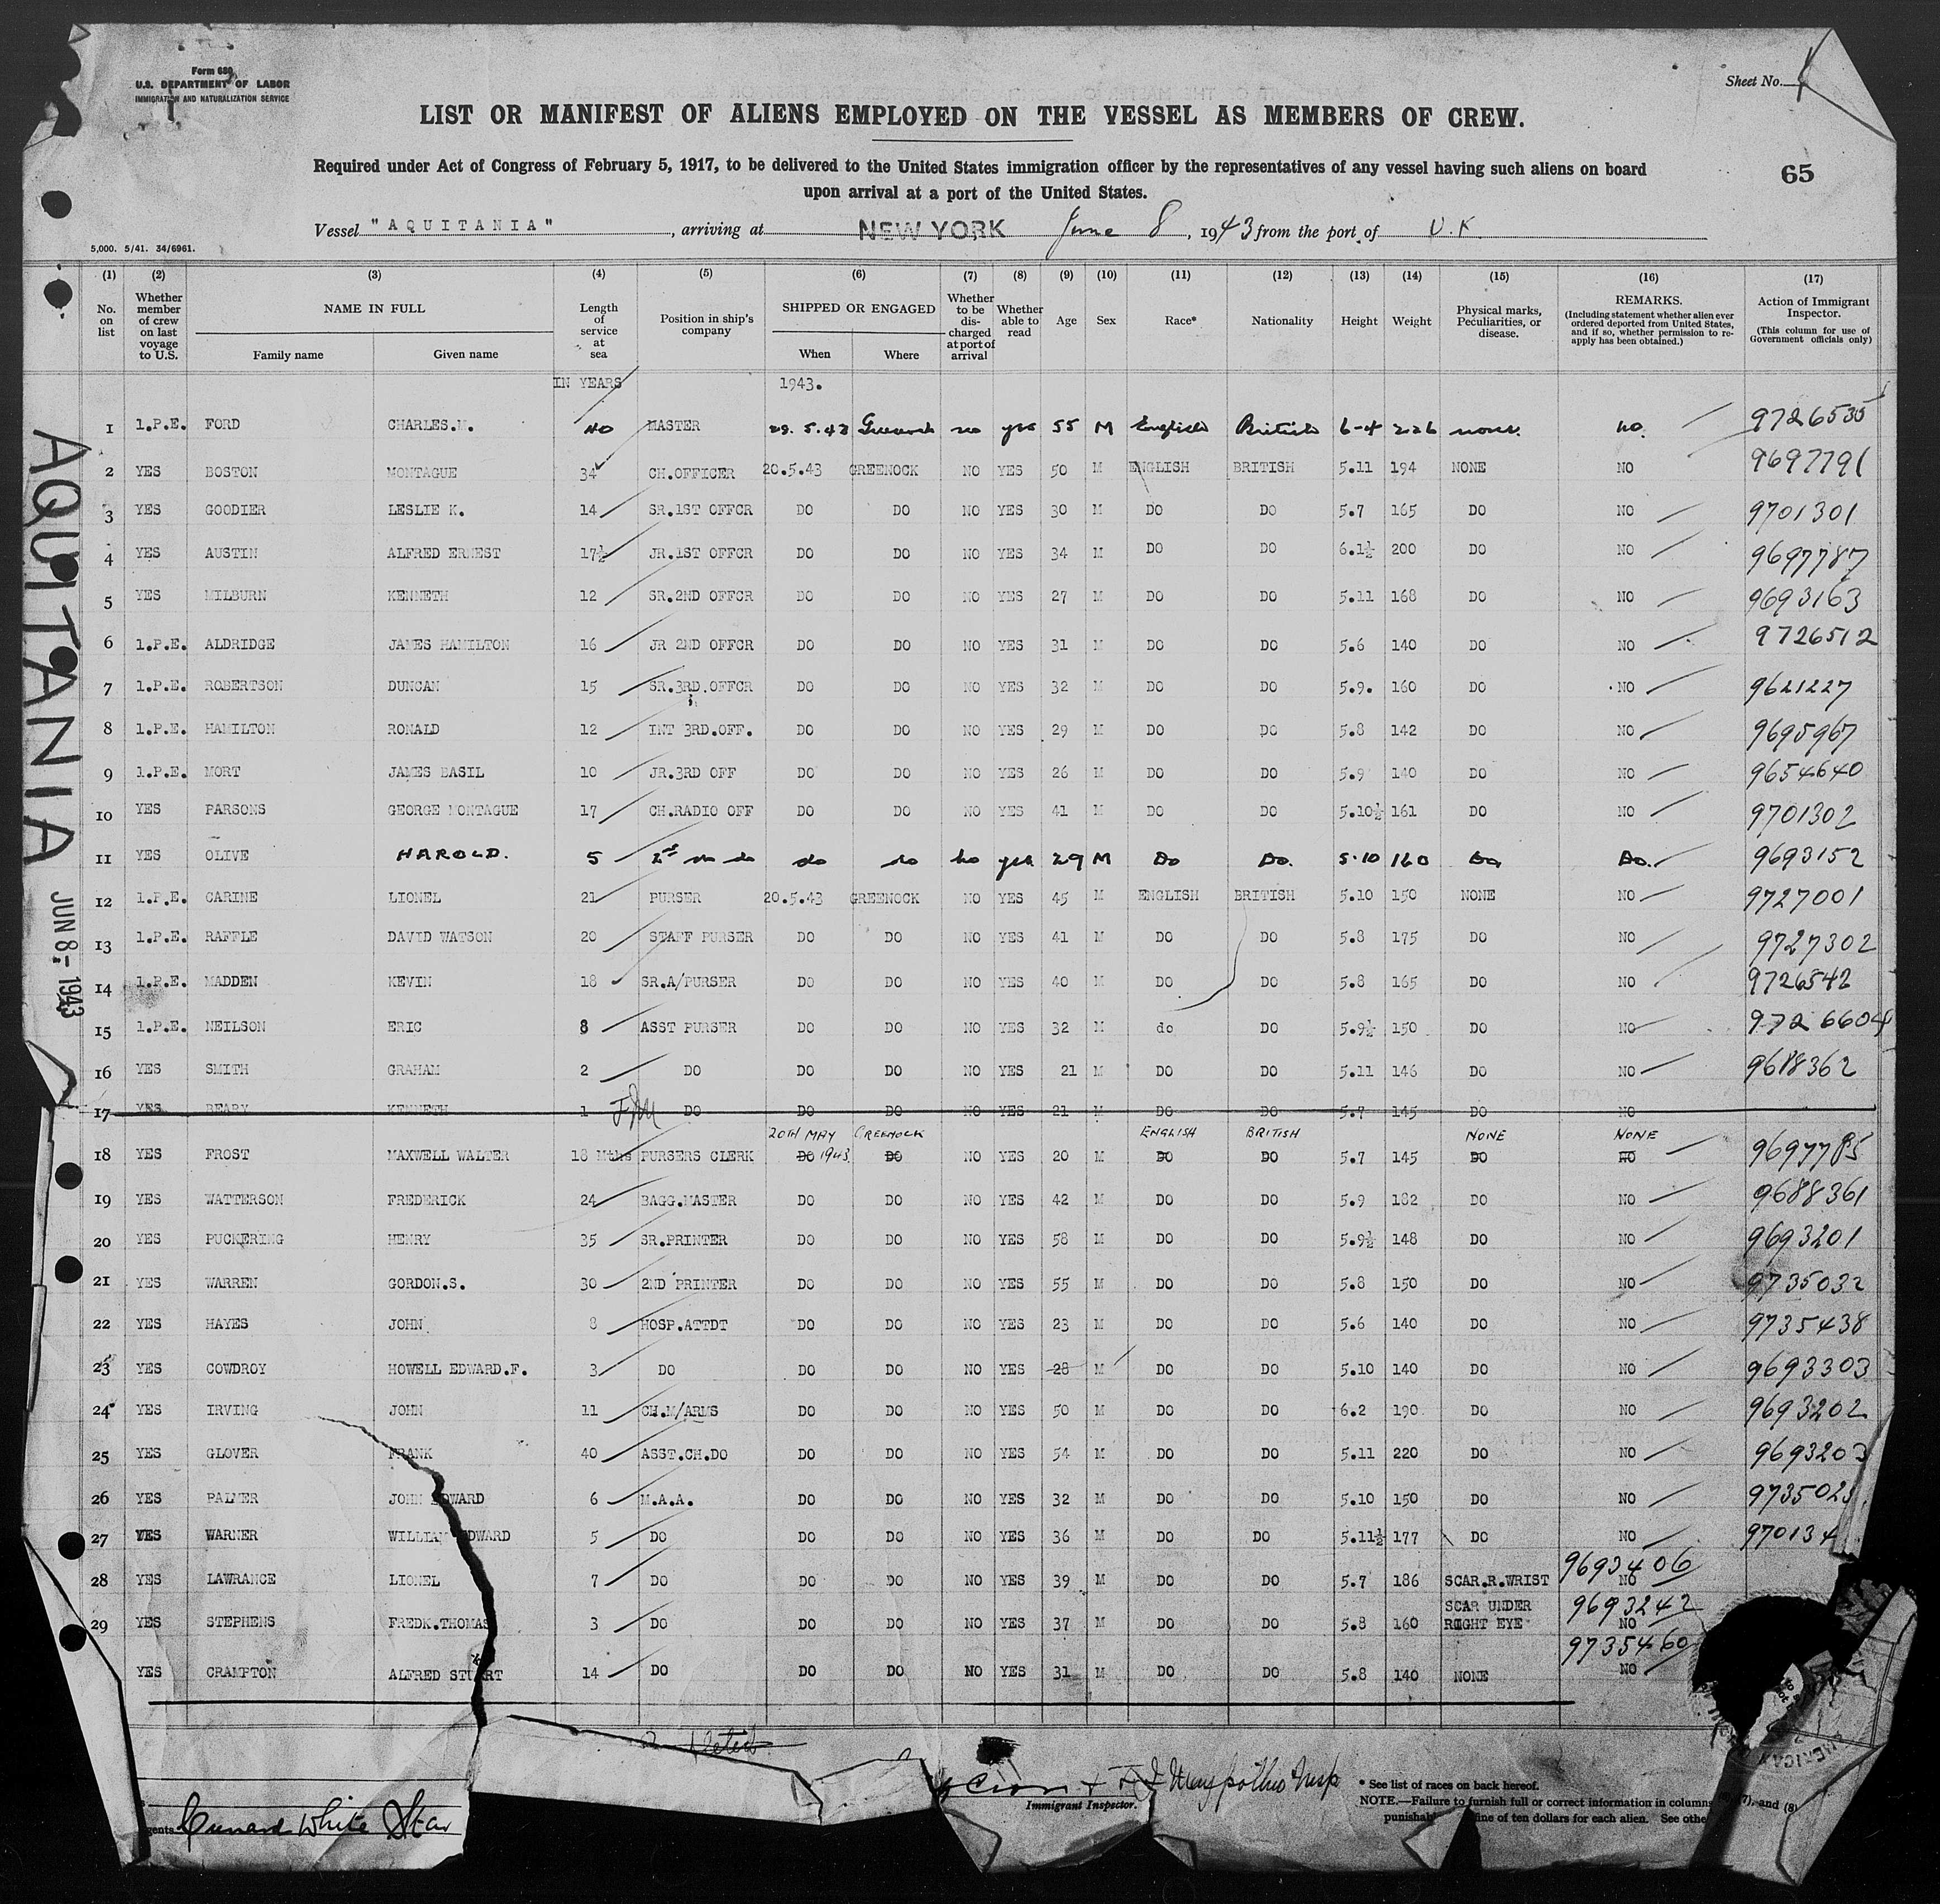 Form 680
U.S. DEPARTMENT OF LABOR
IMMIGRATION AND NATURALIZATION SERVICE
Sheet No. 1
LIST OR MANIFEST OF ALIENS EMPLOYED ON THE VESSEL AS MEMBERS OF CREW.
Required under Act of Congress of February 5, 1917, to be delivered to the United States immigration officer by the representatives of any vessel having such aliens on board
upon arrival at a port of the United States.
65
Vessel "AQUITANIA", arriving at NEW YORK June 8, 1943 from the port of U.K.
5,000. 5/41. 34/6961.
(1) (2) (3) (4) (5) (6) (7) (8) (9) (10) (11) (12) (13) (14) (15) (16) (17)
No. on list
Whether member of crew on last voyage to U.S.
NAME IN FULL
Family name Given name
Length of service at sea
Position in ship's company
SHIPPED OR ENGAGED
When Where
Whether to be discharged at port of arrival
Whether able to read
Age
Sex
Race*
Nationality
Height
Weight
Physical marks, Peculiarities, or disease.
REMARKS.
(Including statement whether alien ever ordered deported from United States, and if so, whether permission to reapply has been obtained.)
Action of Immigrant Inspector.
(This column for use of Government officials only)
IN YEARS 1943.
1 1.P.E. FORD CHARLES.M. 40 MASTER 29.5.43 Greenock no yes 55 M English British 6-4 226 none. no. 9726535
2 YES BOSTON MONTAGUE 34 CH.OFFICER 20.5.43 GREENOCK NO YES 50 M ENGLISH BRITISH 5.11 194 NONE NO 9697791
3 YES GOODIER LESLIE K. 14 SR.1ST OFFCR DO DO NO YES 30 M DO DO 5.7 165 DO NO 9701301
4 YES AUSTIN ALFRED ERNEST 17½ JR.1ST OFFCR DO DO NO YES 34 M DO DO 6.1½ 200 DO NO 9697787
5 YES MILBURN KENNETH 12 SR.2ND OFFCR DO DO NO YES 27 M DO DO 5.11 168 DO NO 9693163
6 1.P.E. ALDRIDGE JAMES HAMILTON 16 JR 2ND OFFCR DO DO NO YES 31 M DO DO 5.6 140 DO NO 9726512
7 1.P.E. ROBERTSON DUNCAN 15 SR.3RD.OFFCR DO DO NO YES 32 M DO DO 5.9. 160 DO NO 9621227
8 1.P.E. HAMILTON RONALD 12 INT 3RD.OFF. DO DO NO YES 29 M DO DO 5.8 142 DO NO 9695967
9 1.P.E. MORT JAMES BASIL 10 JR.3RD OFF DO DO NO YES 26 M DO DO 5.9 140 DO NO 9654640
10 YES PARSONS GEORGE MONTAGUE 17 CH.RADIO OFF DO DO NO YES 41 M DO DO 5.10½ 161 DO NO 9701302
11 YES OLIVE HAROLD. 5 2nd do do do no yes 29 M Do Do. 5.10 160 Do Do. 9693152
12 1.P.E. CARINE LIONEL 21 PURSER 20.5.43 GREENOCK NO YES 45 M ENGLISH BRITISH 5.10 150 NONE NO 9727001
13 1.P.E. RAFFLE DAVID WATSON 20 STAFF PURSER DO DO NO YES 41 M DO DO 5.8 175 DO NO 9727302
14 1.P.E. MADDEN KEVIN 18 SR.A/PURSER DO DO NO YES 40 M DO DO 5.8 165 DO NO 9726542
15 1.P.E. NEILSON ERIC 8 ASST PURSER DO DO NO YES 32 M do DO 5.9½ 150 DO NO 9726604
16 YES SMITH GRAHAM 2 DO DO DO NO YES 21 M DO DO 5.11 146 DO NO 9688362
17 YES BEARY KENNETH 1 DO DO DO NO YES 21 M DO DO 5.7 145 DO NO
20TH MAY GREENOCK ENGLISH BRITISH NONE NONE
18 YES FROST MAXWELL WALTER 18 Mths PURSERS CLERK DO 1943 DO NO YES 20 M DO DO 5.7 145 DO NO 9697785
19 YES WATTERSON FREDERICK 24 BAGG.MASTER DO DO NO YES 42 M DO DO 5.9 182 DO NO 9688361
20 YES PUCKERING HENRY 35 SR.PRINTER DO DO NO YES 58 M DO DO 5.9½ 148 DO NO 9693201
21 YES WARREN GORDON.S. 30 2ND PRINTER DO DO NO YES 55 M DO DO 5.8 150 DO NO 9735032
22 YES HAYES JOHN 8 HOSP.ATTDT DO DO NO YES 23 M DO DO 5.6 140 DO NO 9735438
23 YES COWDROY HOWELL EDWARD.F. 3 DO DO DO NO YES 28 M DO DO 5.10 140 DO NO 9693303
24 YES IRVING JOHN 11 CH.M/ARMS DO DO NO YES 50 M DO DO 6.2 190 DO NO 9693202
25 YES GLOVER FRANK 40 ASST.CH.DO DO DO NO YES 54 M DO DO 5.11 220 DO NO 9693203
26 YES PALMER JOHN EDWARD 6 M.A.A. DO DO NO YES 32 M DO DO 5.10 150 DO NO 973502
27 YES WARNER WILLIAM EDWARD 5 DO DO DO NO YES 36 M DO DO 5.11½ 177 DO NO 970134
28 YES LAWRANCE LIONEL 7 DO DO DO NO YES 39 M DO DO 5.7 186 SCAR.R.WRIST NO 9693406
29 YES STEPHENS FREDK.THOMAS 3 DO DO DO NO YES 37 M DO DO 5.8 160 SCAR UNDER RIGHT EYE NO 9693242
YES CRAMPTON ALFRED STUART 14 DO DO DO NO YES 31 M DO DO 5.8 140 NONE NO 9735460
AQUITANIA JUN 8 - 1943
Immigrant Inspector.
Cunard White Star
* See list of races on back hereof.
NOTE.—Failure to furnish full or correct information in columns 7), and (8)
punishab fine of ten dollars for each alien. See othe